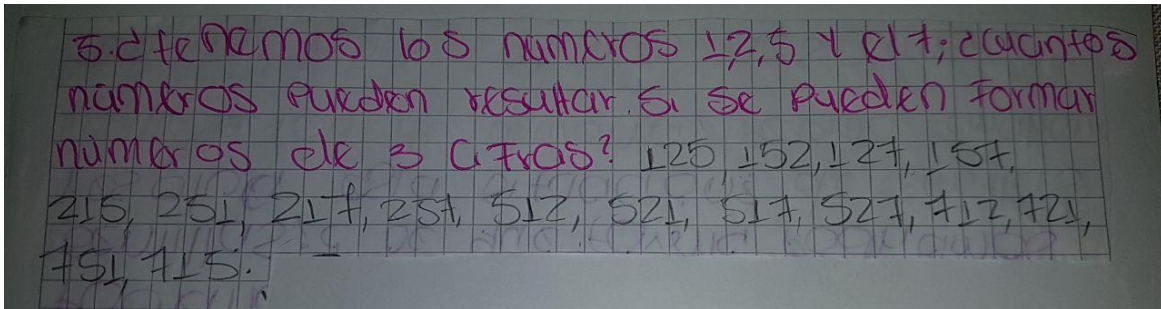 5. ¿tenemos los numeros 1,2,5 y el 7; ¿cuantos
numeros pueden resultar si se pueden formar
numeros de 3 cifras? 125, 152, 127, 157,
215, 251, 217, 257, 512, 521, 517, 527, 712, 721,
751, 715.